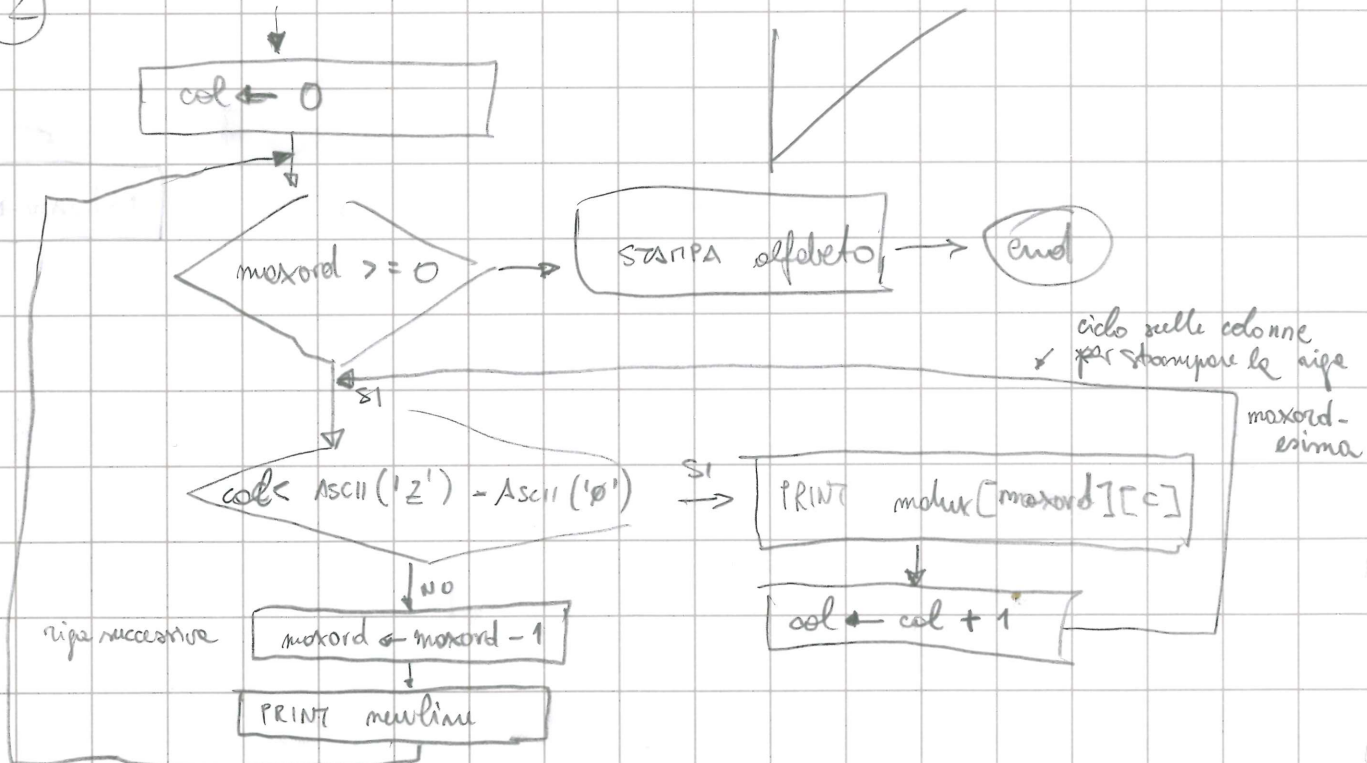 col ← 0
maxord >= 0
STAMPA alfabeto
end
ciclo sulle colonne
per stampare la riga
maxord-
esima
SI
col < ASCII('Z') - ASCII('0')
SI
PRINT [maxord][c]
NO
col ← col + 1
riga successiva
maxord ← maxord - 1
PRINT newline